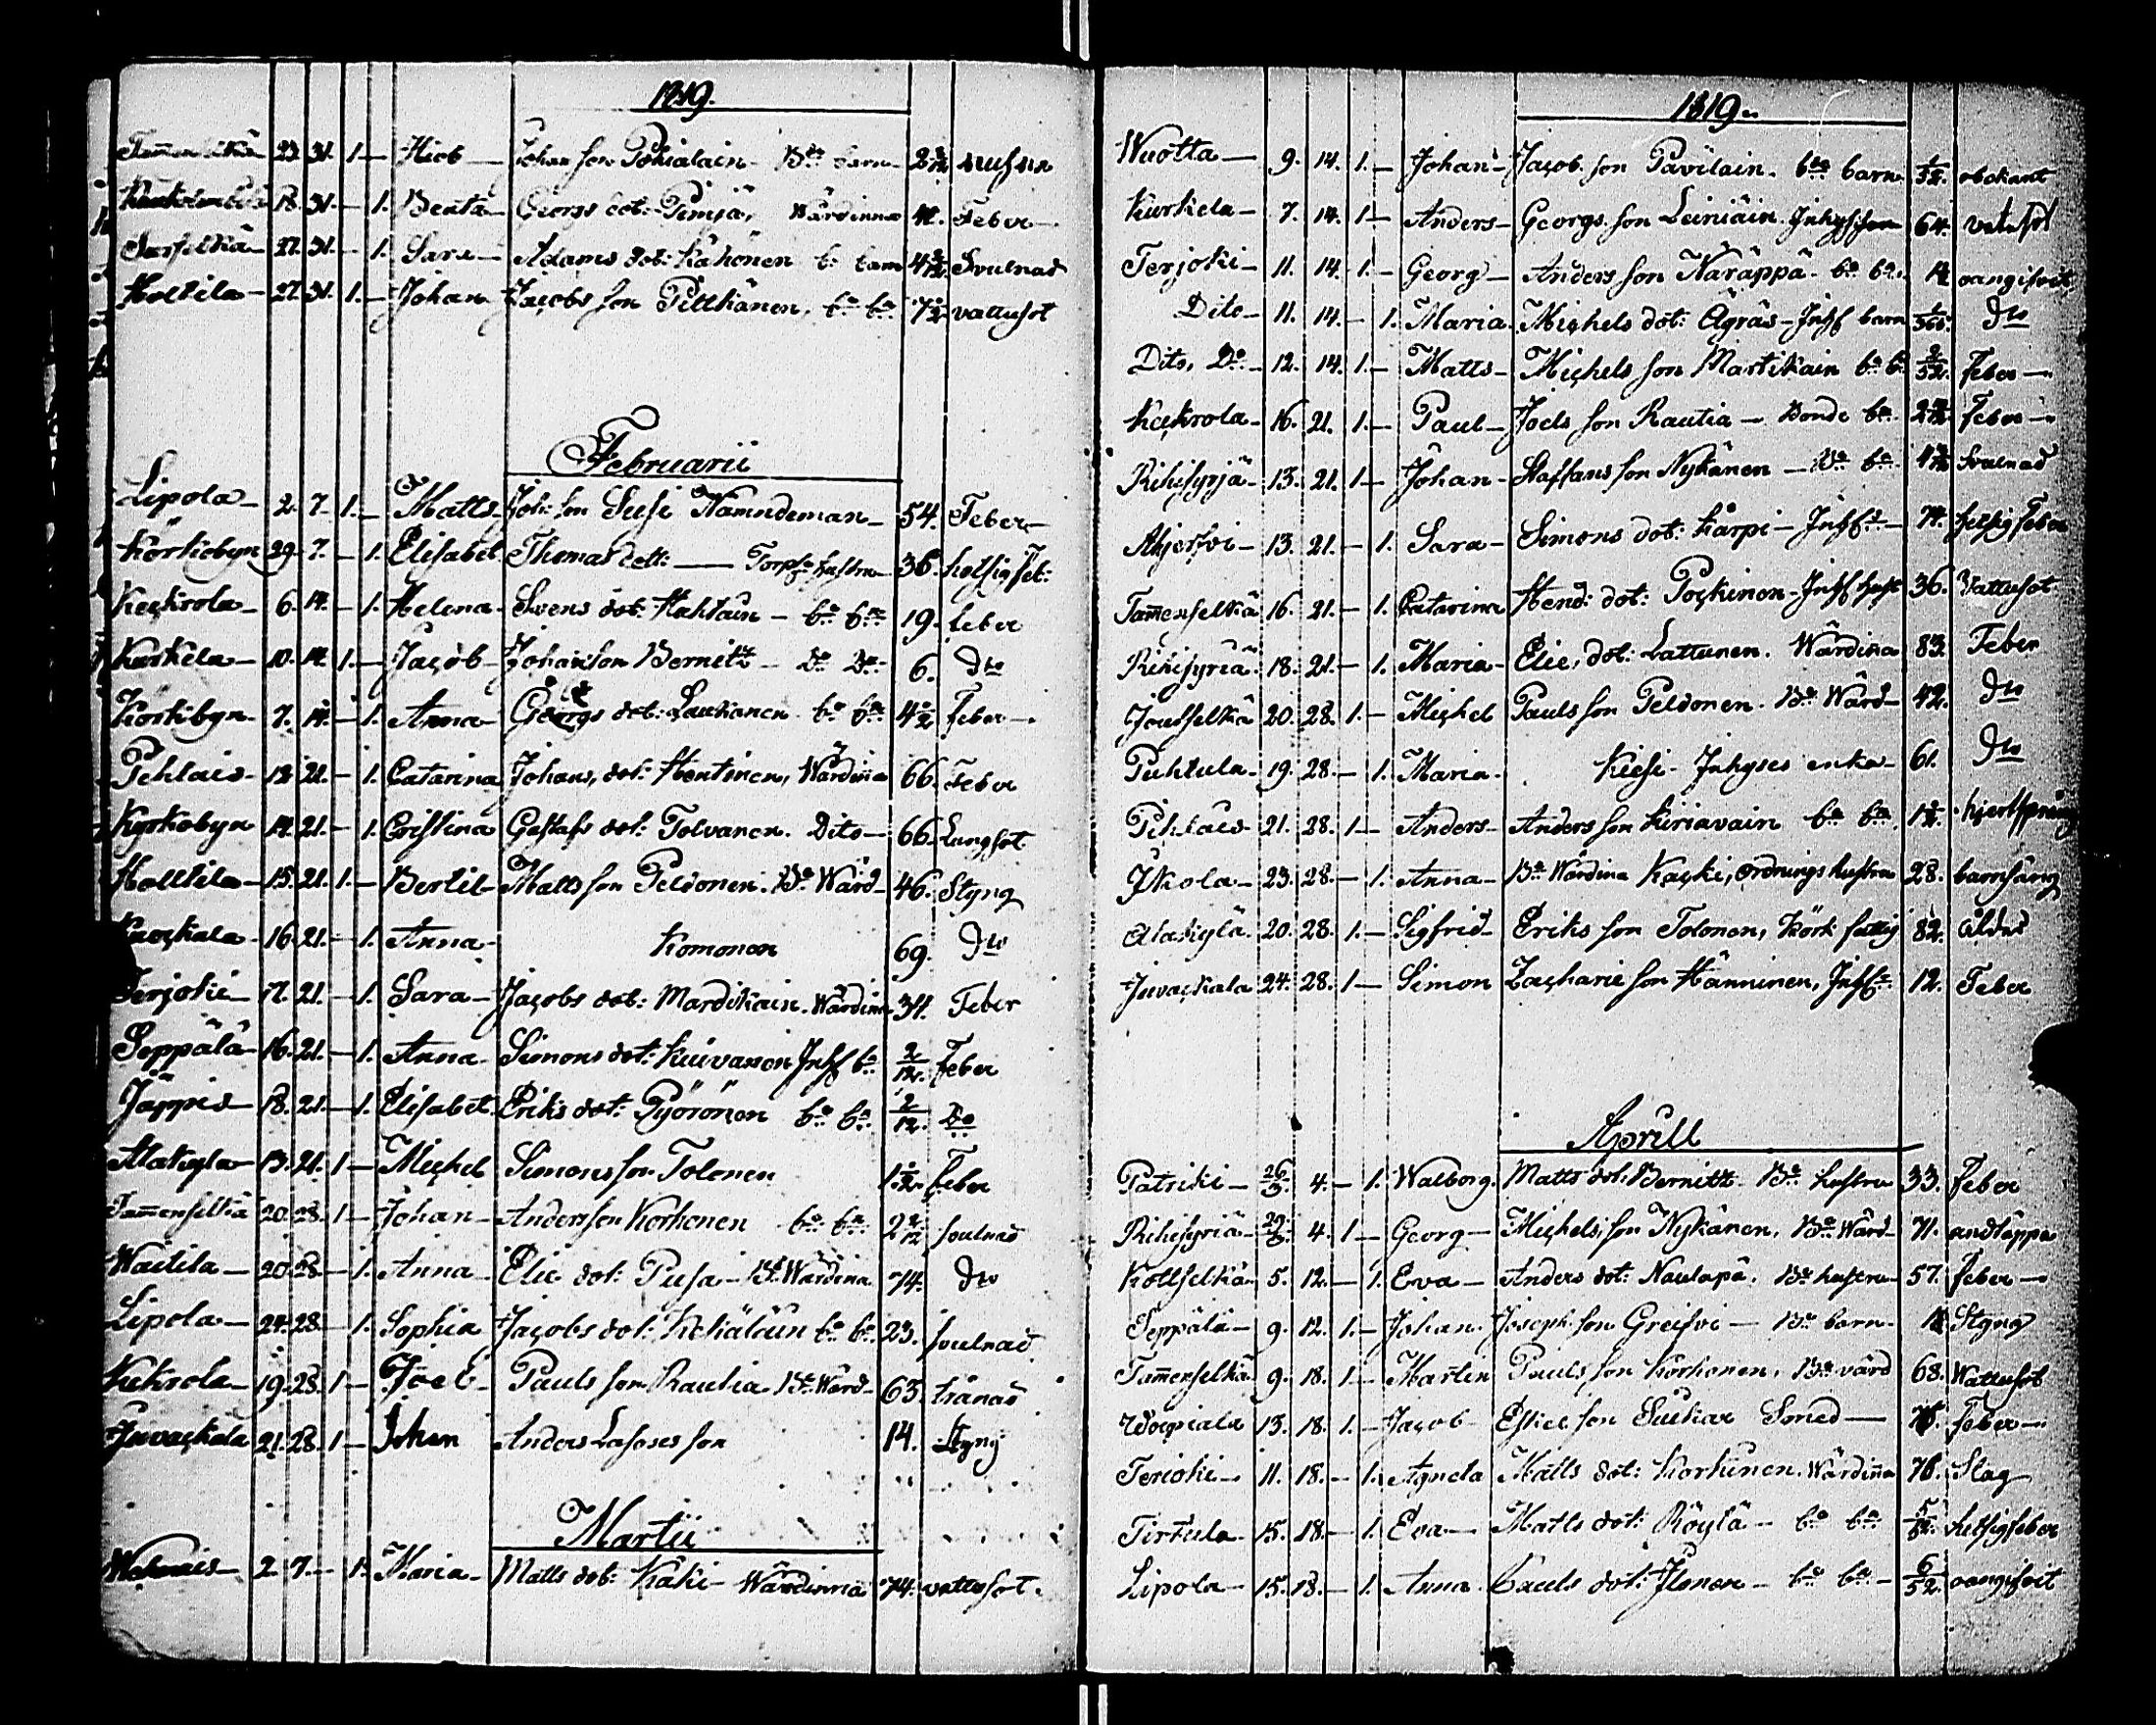 1819.
23. 31. 1. — Hiob — Johan son Pohialain — Bde barn
18. 31. — 1. Beata — Georgs dot: Pimiä, Wärdinna 41. Feber —
27. 31. — 1. Sara — Adams dot: Kähönen b: barn Svulnad
Holtila — 27. 31. 1. — Johan — Jacobs son Pitkänen, bde bn: vattusot
Februarii
Lipola — 2. 7. 1. — Matts — Joh: son Susi Nämndeman — 54. Feber —
Körkobyn 29. 7. — 1. Elisabet Thomas dott: — Torp: hustru — 36. hetsig feb:
Keckrola — 6. 14. — 1. Helena — Svens dot: Hahtain — bde bn: 19. feber
Kurkela — 10. 14. 1. — Jacob — Johan son Bernitz — Do Do — 6. Dto
Körkobyn — 7. 14. — 1. Anna — Georgs dot: Laukanen bde bn: feber —
Pihlais — 12. 21. — 1. Catarina Johans, dot: Hentinen, Wärdina 66. Feber
Kyrkobyn 14. 21. — 1. Cristina Gustafs dot: Tolvanen. Dito — 66. Lungsot
Holttila — 15. 21. 1. — Bertil — Matts son Peldonen. Bde Wärd — 46. Styng
16. 21. — 1. Anna — Komonen 69. Dto
Terjoki — 17. 21. — 1. Sara — Jacobs dot: Mardikain. Wärdina 34. Feber
Seppälä — 16. 21. — 1. Anna — Simons dot: Kuivanon Inhs bn: 2/12. feber
Jäppis — 18. 21. — 1. Elisabet. Eriks dot: Pyörönen bde bn: 2/12. Do
Alakyla — 13. 21. 1 — Michel Simons son Tolonen feber
Tam̄enselkä 20. 28. 1 — Johan — Anders son Korhonen bde bn: 2 2/12 svulnad
Waitila — 20. 28. — 1. Anna — Elie dot: Pusa — Bde Wärdina 74. Dto
Lipola — 24. 28. — 1. Sophia Jacobs dot: Kekäläin bde bn: 23. svulnad
Kekrola — 19. 28. 1 — Joel — Pauls son Rautia Bde Wärd — 63. trånad
Juvackala 21. 28. 1 — Johan Anders son 14. Styng
Martii
2. 7. — 1. Maria — Matts dot: Käki — Wärdinna 74. vattusot.
1819.
Wuotta — 9. 14. 1. — Johan — Jacob. son Pavilain. bde barn obekant
Kurkela — 7. 14. 1 — Anders — Georgs. son Leiniäin. 64. vattusot
Terjoki — 11. 14. 1. — Georg — Anders son Näräppä. bde bn. oangifvit
Dito — 11. 14. — 1. Maria. Michels dot: Ägräs — Inhs barn Dto
Dito, Do — 12. 14. 1. — Matts — Michels son Martikain bde b: 2/52. feber —
Keckrola — 16. 21. 1. — Paul — Joels son Rautia — Bonde bn. feber —
Rihisyrjä — 13. 21. 1 — Johan — Staffans son Nykänen — Bde bn. Svulnad
13. 21. — 1. Sara — Simons dot: Kärpi — Inhs 74. hetsig feber
Tam̄enselkä 16. 21. — 1. Catarina Hend: dot: Pockinen — Inhs hust 36. Vattusot
Rihisyriä — 18. 21. — 1. Maria — Elie, dot: Lattunen. Wärdina 83. Feber
Jousselkä 20. 28. 1. — Michel Pauls son Peldonen. Bde Wärd — 42. Dto
Puhtula — 19. 28. — 1. Maria. Kiesi — Inhyses enka — 61. Dto
Pihlais — 21. 28. 1 — Anders — Anders son Kiriavain bde bn. hjertsprång
Ikola — 23. 28. — 1. Anna — Bde Wärdina Kacki, ordnings hustru 28. barnsäng
Alakylä. 20. 28. 1. — Sigfrid — Eriks son Tolonen, Körk fattig 82. ålder
Juvackala 24. 28. 1 — Simon Zacharie son Hänninen, Inhs 12. Feber
Aprill
Patriki — 26/3. 4. — 1. Walborg. Matts dot: Bernitz. Bde hustru 33. feber
Rihisyriä — 29/3. 4. 1 — Georg — Michels, son Nykänen, Bde Wärd — 71. andtäppa
Kottselkä — 5. 12. — 1. Eva — Anders dot: Naulapä. Bde hustru — 57. feber —
Seppälä — 9. 12. 1. — Johan. Joseph. son Greifvi — Bde barn. Styng
Tam̄enselkä. 9. 18. 1 — Martin Pauls son Korhonen, Bde värd 68. Wattusot
13. 18. 1. — Jacob — Eskel son Suikar Smed — feber —
Terioki — 11. 18. — 1. Agneta Matts dot: Korhinen. Wärdinna 76. Slag
Tirtula — 15. 18. — 1. Eva — Matts dot: Röylä — bde bn: hetsig feber
Lipola — 15. 18. — 1. Anna Pauls dot: Ilonen — bde bn: — 6/52. oangifvit